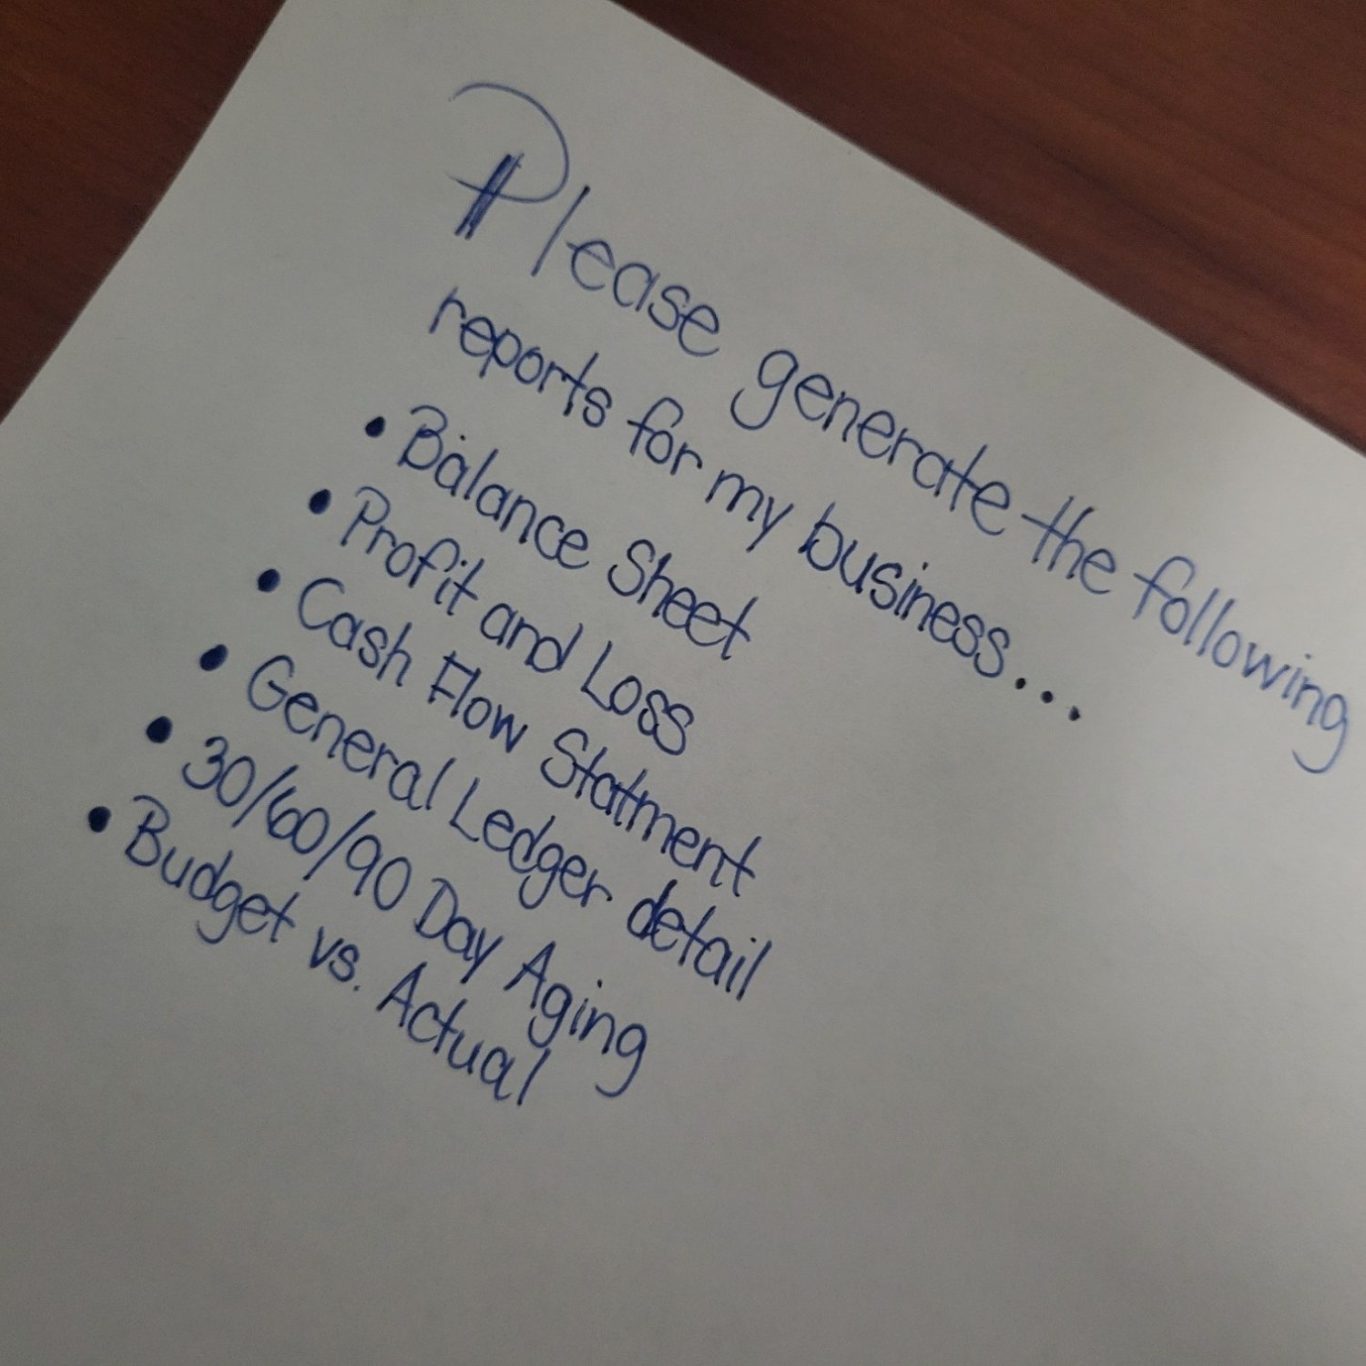 Please generate the following
reports for my business...
• Balance Sheet
• Profit and Loss
• Cash Flow Statment
• General Ledger detail
• 30/60/90 Day Aging
• Budget vs. Actual